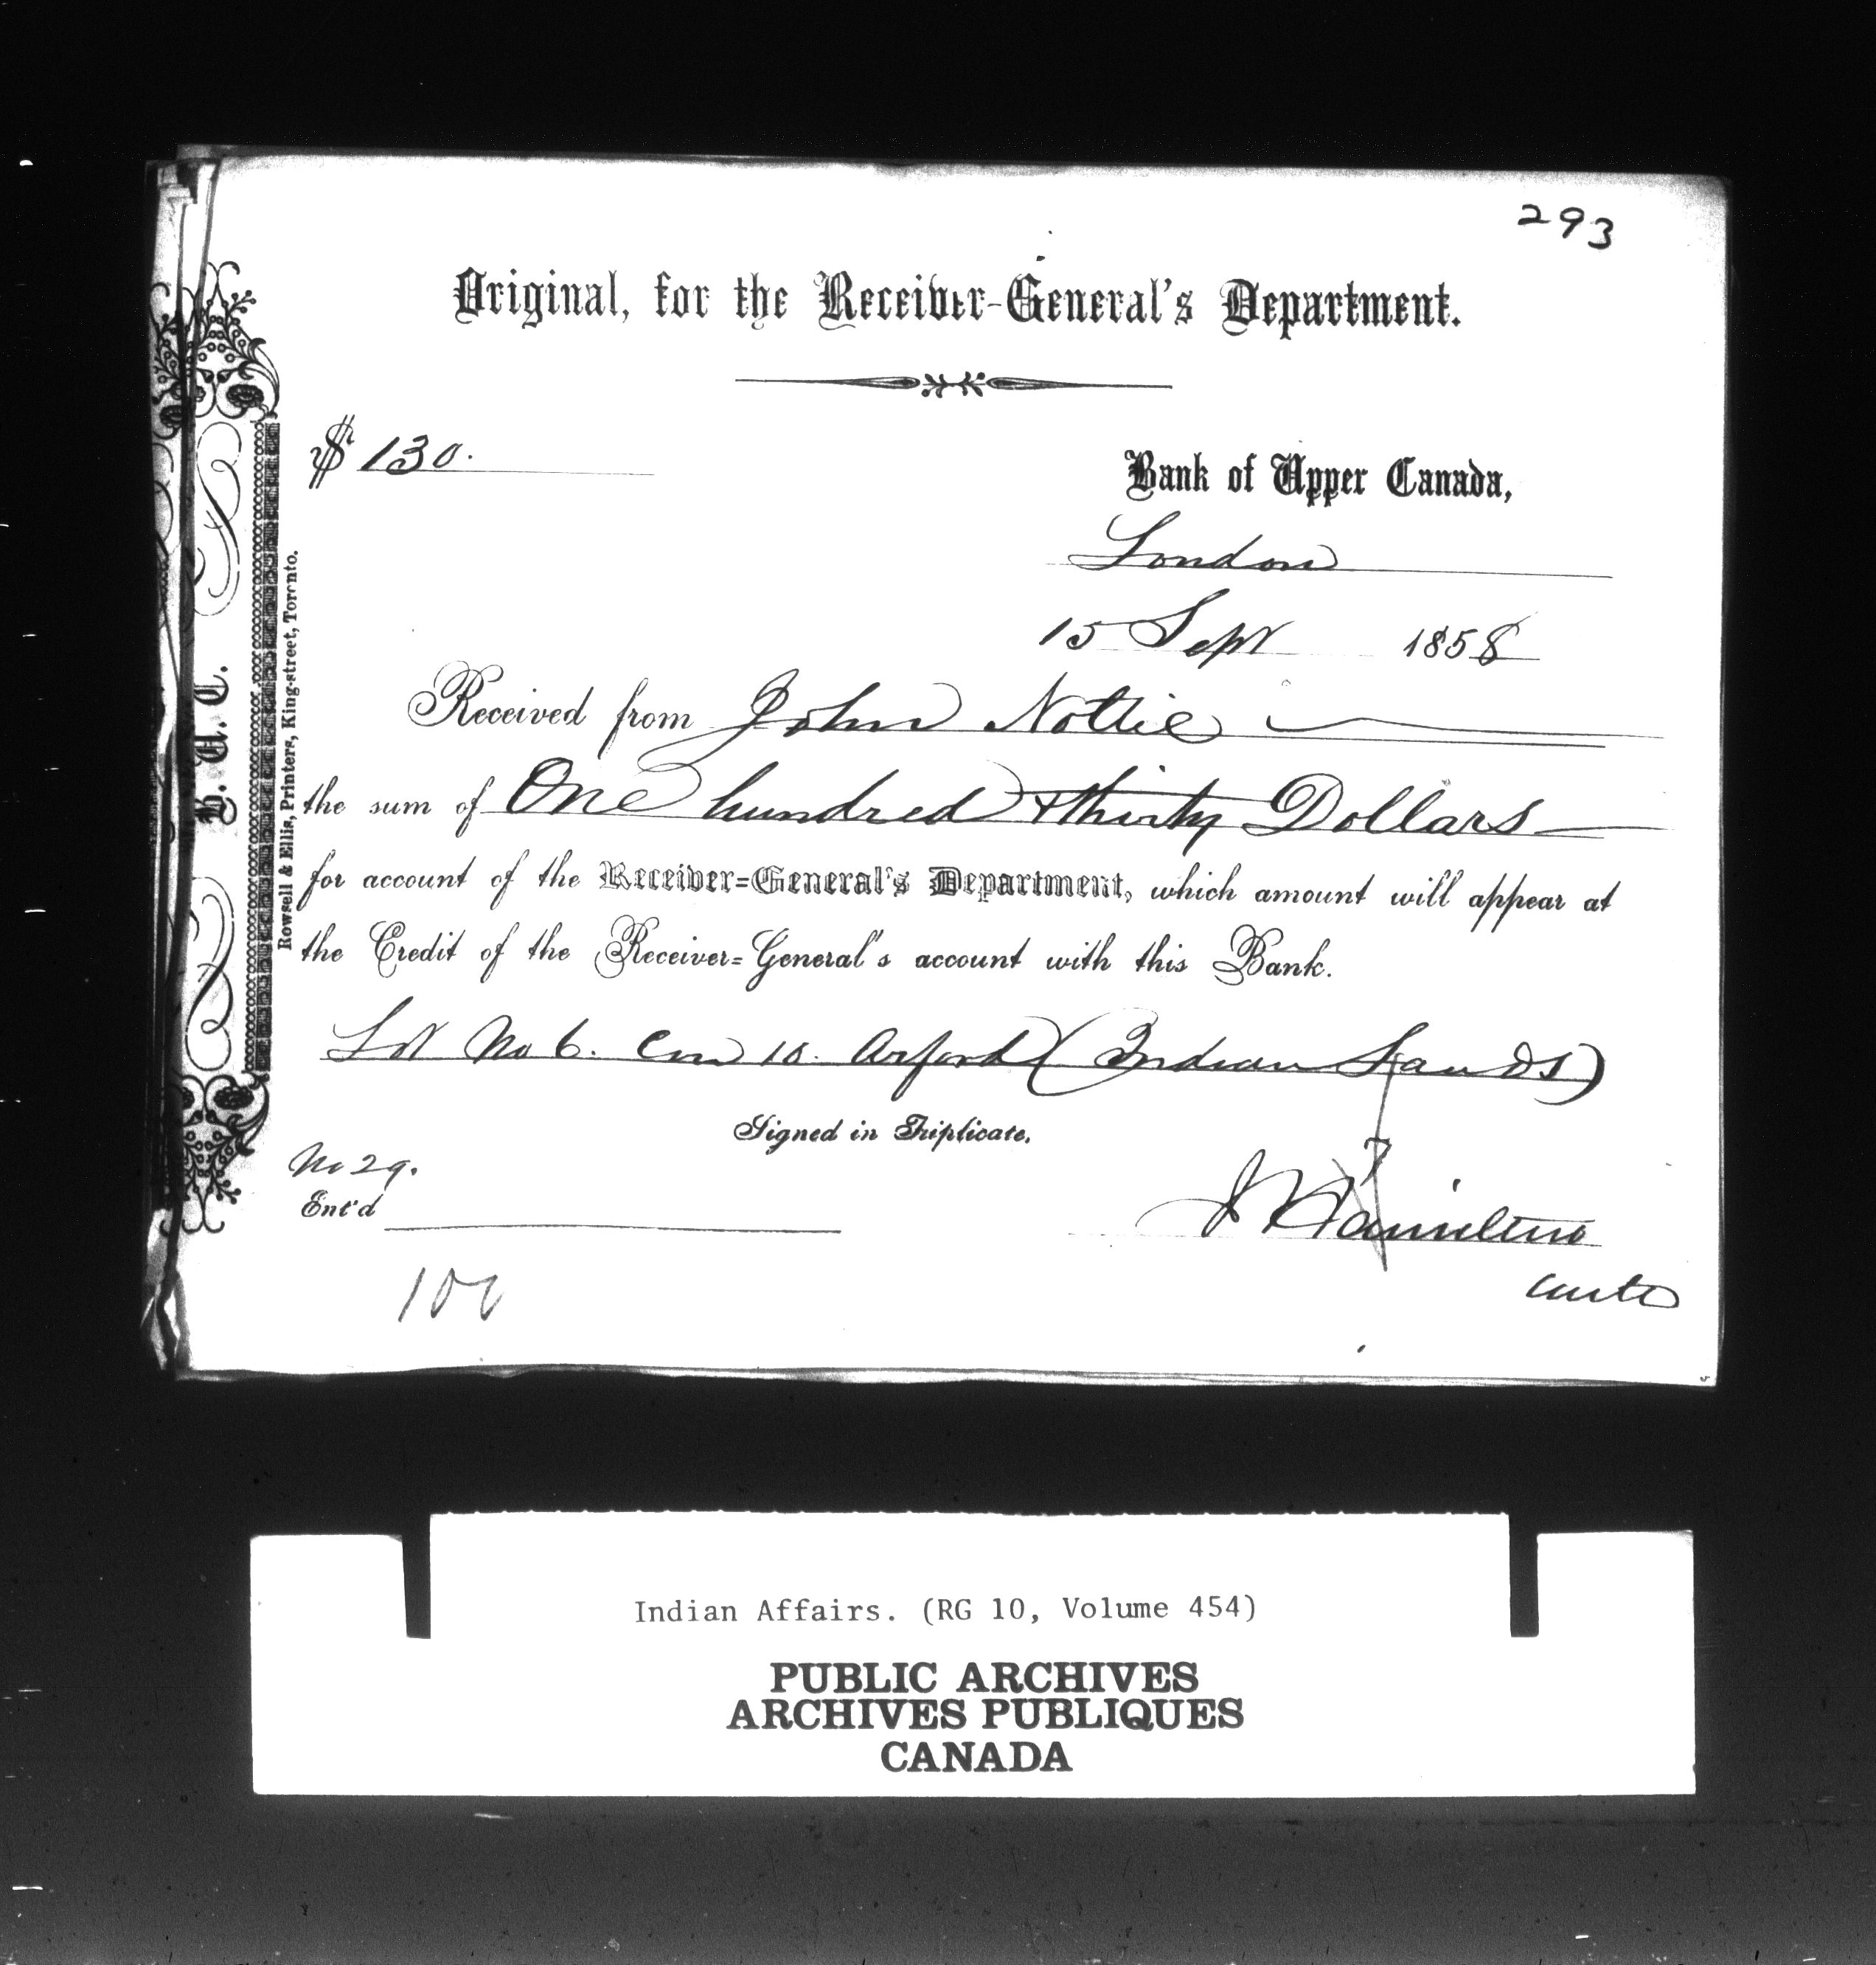 293
Original, for the Receiver-General's Department.
$ 130.
Bank of Upper Canada,
London
15 Sept 1858
Received from John Nottie
the sum of One hundred & thirty Dollars
for account of the Receiver=General's Department, which amount will appear at
the Credit of the Receiver=General's account with this Bank.
Lot No 6. Con 10. Orford (Indian Lands)
Signed in Triplicate.
No 29.
Ent'd
J Hamilton
100
B. U. C.
Rowsell & Ellis, Printers, King-street, Toronto.
Indian Affairs. (RG 10, Volume 454)
PUBLIC ARCHIVES
ARCHIVES PUBLIQUES
CANADA